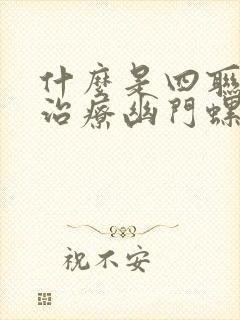 什麼是四聯
治療幽門螺
祝不安